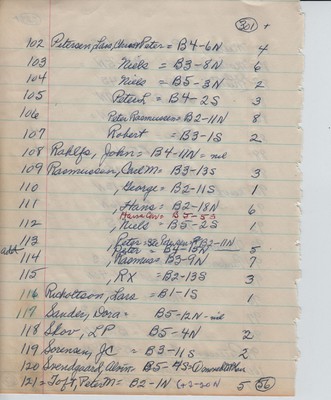 301 +
102 Petersen, Lars, Peter = B4-6N 4
103 Niels = B3-8N 6
104 Niels = B5-3N 2
105 Peter L = B4-2S 3
106 Peter Rasmussen = B2-11N 8
107 Robert = B3-1S 2
108 Rahlfs, John = B4-11N = nil
109 Rasmussen, Carl M = B3-13S 3
110 , George = B2-11S 1
111 , Hans = B2-18N 6
B5-5S
112 , Niels = B5-2S 1
113 Peter B2-11N
add Peter = B4-15N 5
114 , Rasmus = B3-9N 7
115 , RX = B2-13S 3
116 Rickoltson, Lars = B1-1S 1
117 Sander, Dora = B5-12N - nil
118 Skov, LP B5-4N 2
119 Sorensen, JC = B3-11S 2
120 Svendgaard, Alvin = B5-4S =
121 = Toft, Peter M = B2-1N (+3-20N 5 56